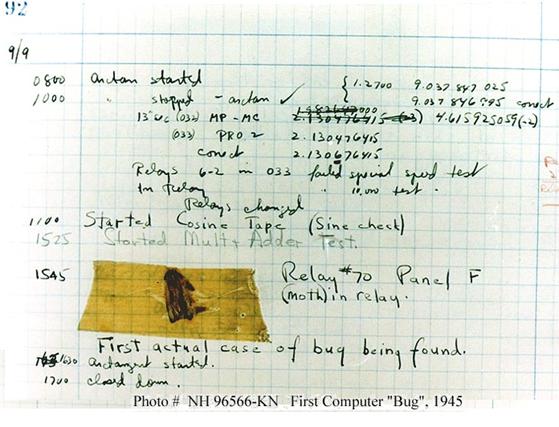 92
9/9
0800 arctan started { 1.2700 9.037 847 025
1000 " stopped - arctan ✓ 9.037 846 995 correct
13"uc (032) MP - MC 2.130476415 (-3) 4.615925059(-2)
(033) PRO 2 2.130476415
correct 2.130676415
Relays 6-2 in 033 failed special speed test
In Relay " 10,000 test.
Relays changed
1100 Started Cosine Tape (Sine check)
1525 Started Mult + Adder Test.
1545 Relay #70 Panel F
(moth) in relay.
First actual case of bug being found.
1630 arctangent started.
1700 closed down.
Photo # NH 96566-KN First Computer "Bug", 1945